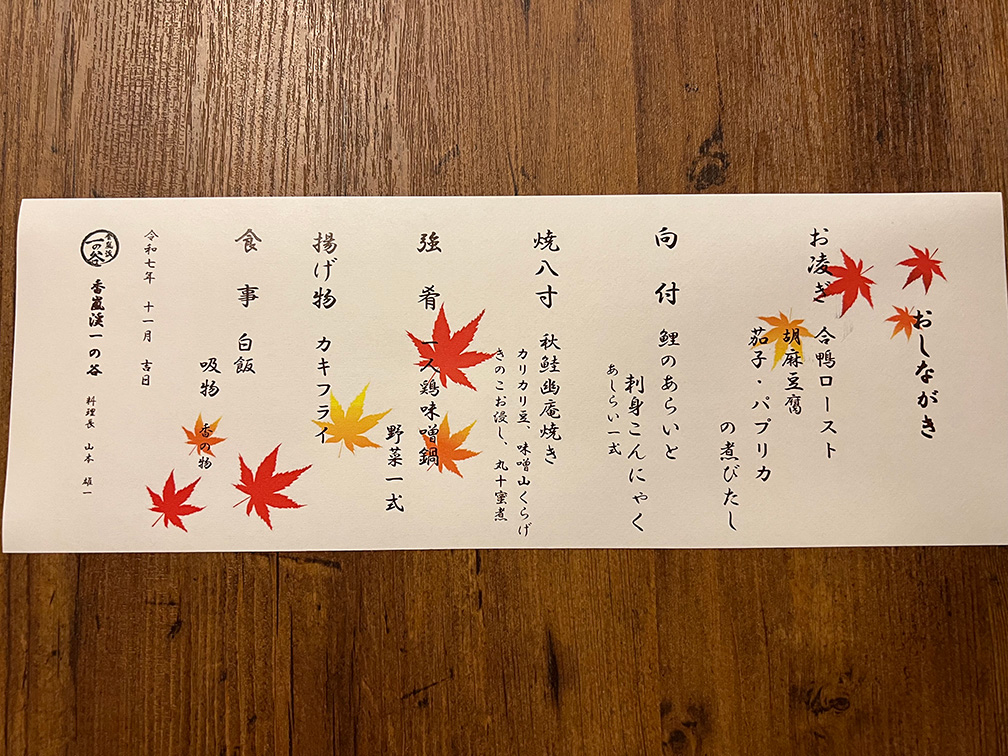 おしながき
お凌ぎ 合鴨ロースト
胡麻豆腐
茄子・パプリカ
の煮びたし
向付 鯉のあらいと
刺身こんにゃく
あしらい一式
焼八寸 秋鮭幽庵焼き
カリカリ豆、味噌山くらげ
きのこお浸し、丸十蜜煮
強肴 一人鶏味噌鍋
野菜一式
揚げ物 カキフライ
食事 白飯
吸物
香の物
令和七年 十一月 吉日
香嵐渓
一の谷
香嵐渓一の谷 料理長 山本 雄一